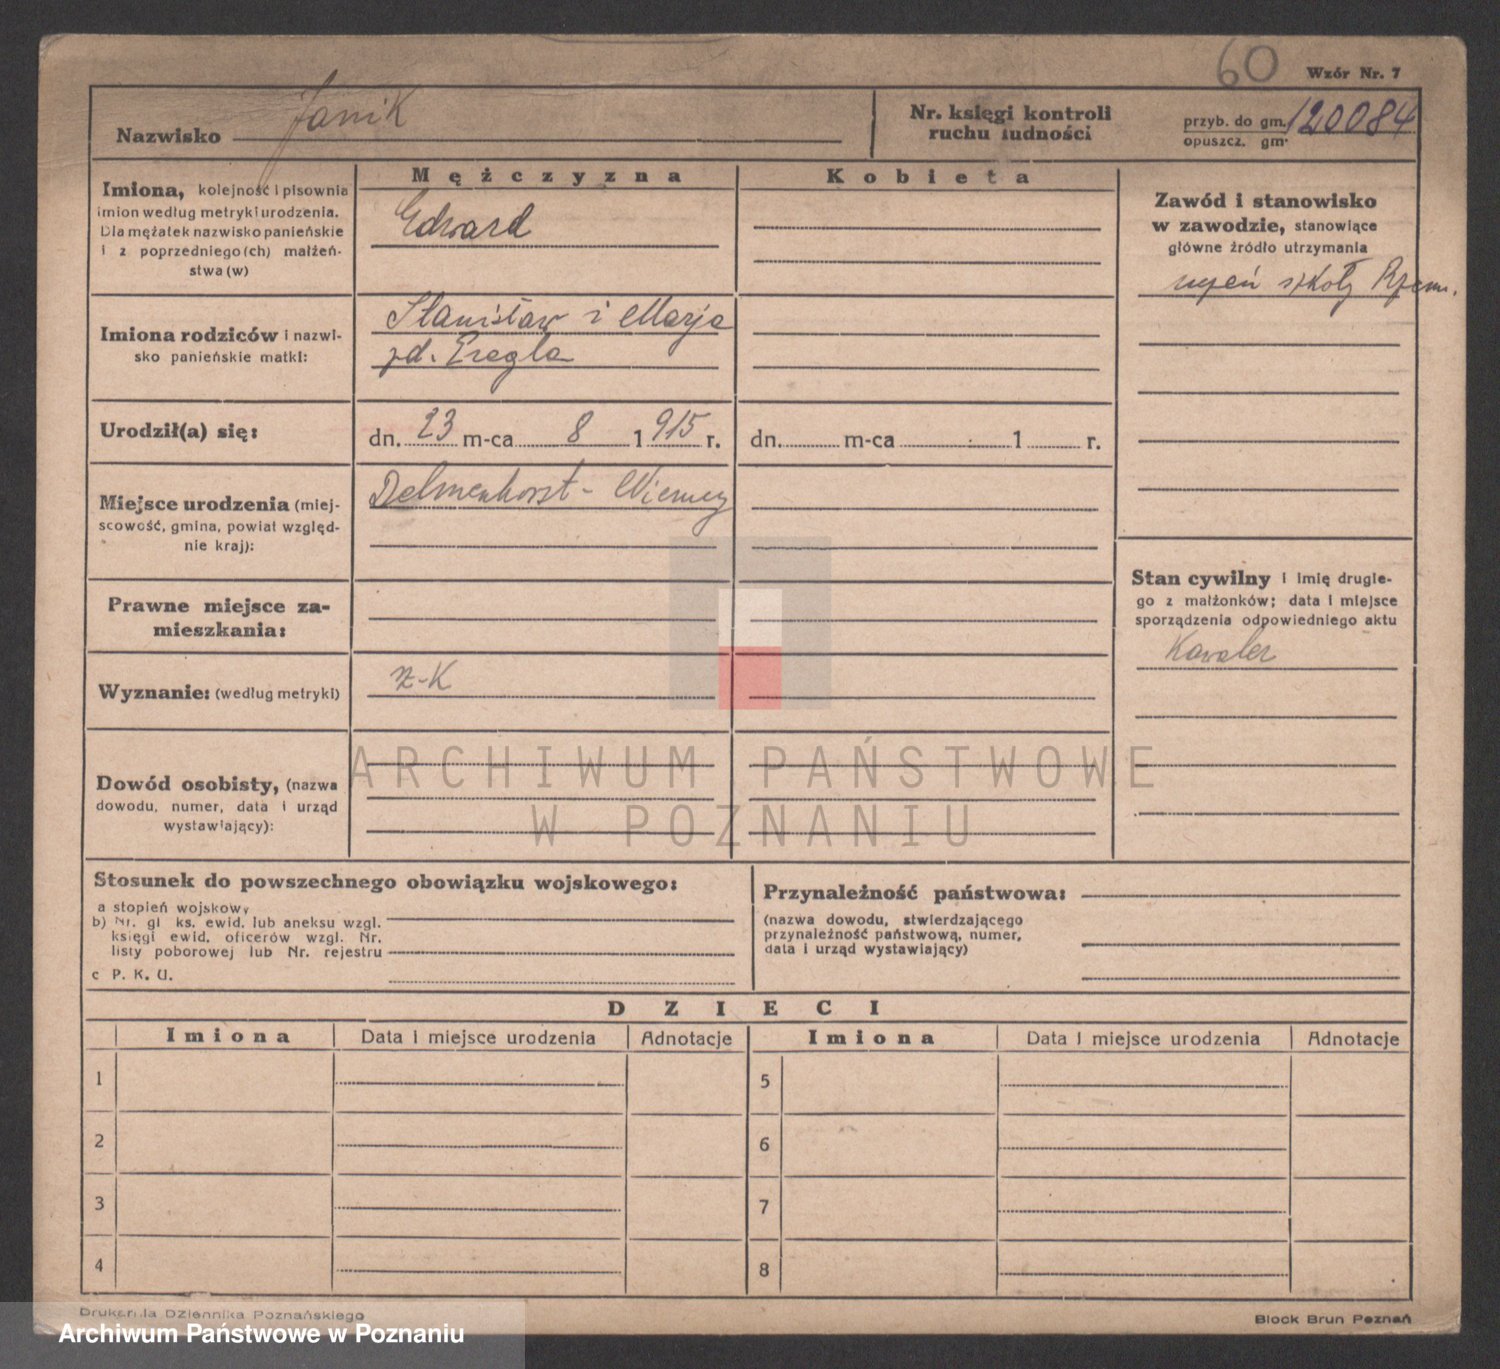 60
Wzór Nr. 7
Nazwisko Janik
Nr. księgi kontroli
ruchu ludności
przyb. do gm. 120084
opuszcz. gm.
Mężczyzna
Kobieta
Imiona, kolejność i pisownia
imion według metryki urodzenia.
Dla mężatek nazwisko panieńskie
i z poprzedniego(ch) małżeń-
stwa(w)
Edward
Zawód i stanowisko
w zawodzie, stanowiące
główne źródło utrzymania
uczeń szkoły Rzem.
Imiona rodziców i nazwi-
sko panieńskie matki:
Stanisław i Marja
zd.
Urodził(a) się:
dn. 23 m-ca 8 1915 r.
dn. m-ca 1 r.
Miejsce urodzenia (miej-
scowość, gmina, powiat względ-
nie kraj):
Delmenhorst - Niemcy
Prawne miejsce za-
mieszkania:
Stan cywilny i imię drugie-
go z małżonków; data i miejsce
sporządzenia odpowiedniego aktu
Kawaler
Wyznanie: (według metryki)
rz-K
Dowód osobisty, (nazwa
dowodu, numer, data i urząd
wystawiający):
ARCHIWUM PAŃSTWOWE
W POZNANIU
Stosunek do powszechnego obowiązku wojskowego:
a stopień wojskowy
b) Nr. gł ks. ewid. lub aneksu wzgl.
księgi ewid. oficerów wzgl. Nr.
listy poborowej lub Nr. rejestru
c P. K. U.
Przynależność państwowa:
(nazwa dowodu, stwierdzającego
przynależność państwową, numer,
data i urząd wystawiający)
DZIECI
Imiona Data i miejsce urodzenia Adnotacje Imiona Data i miejsce urodzenia Adnotacje
1 5
2 6
3 7
4 8
Drukarnia Dziennika Poznańskiego
Block Brun Poznań
Archiwum Państwowe w Poznaniu